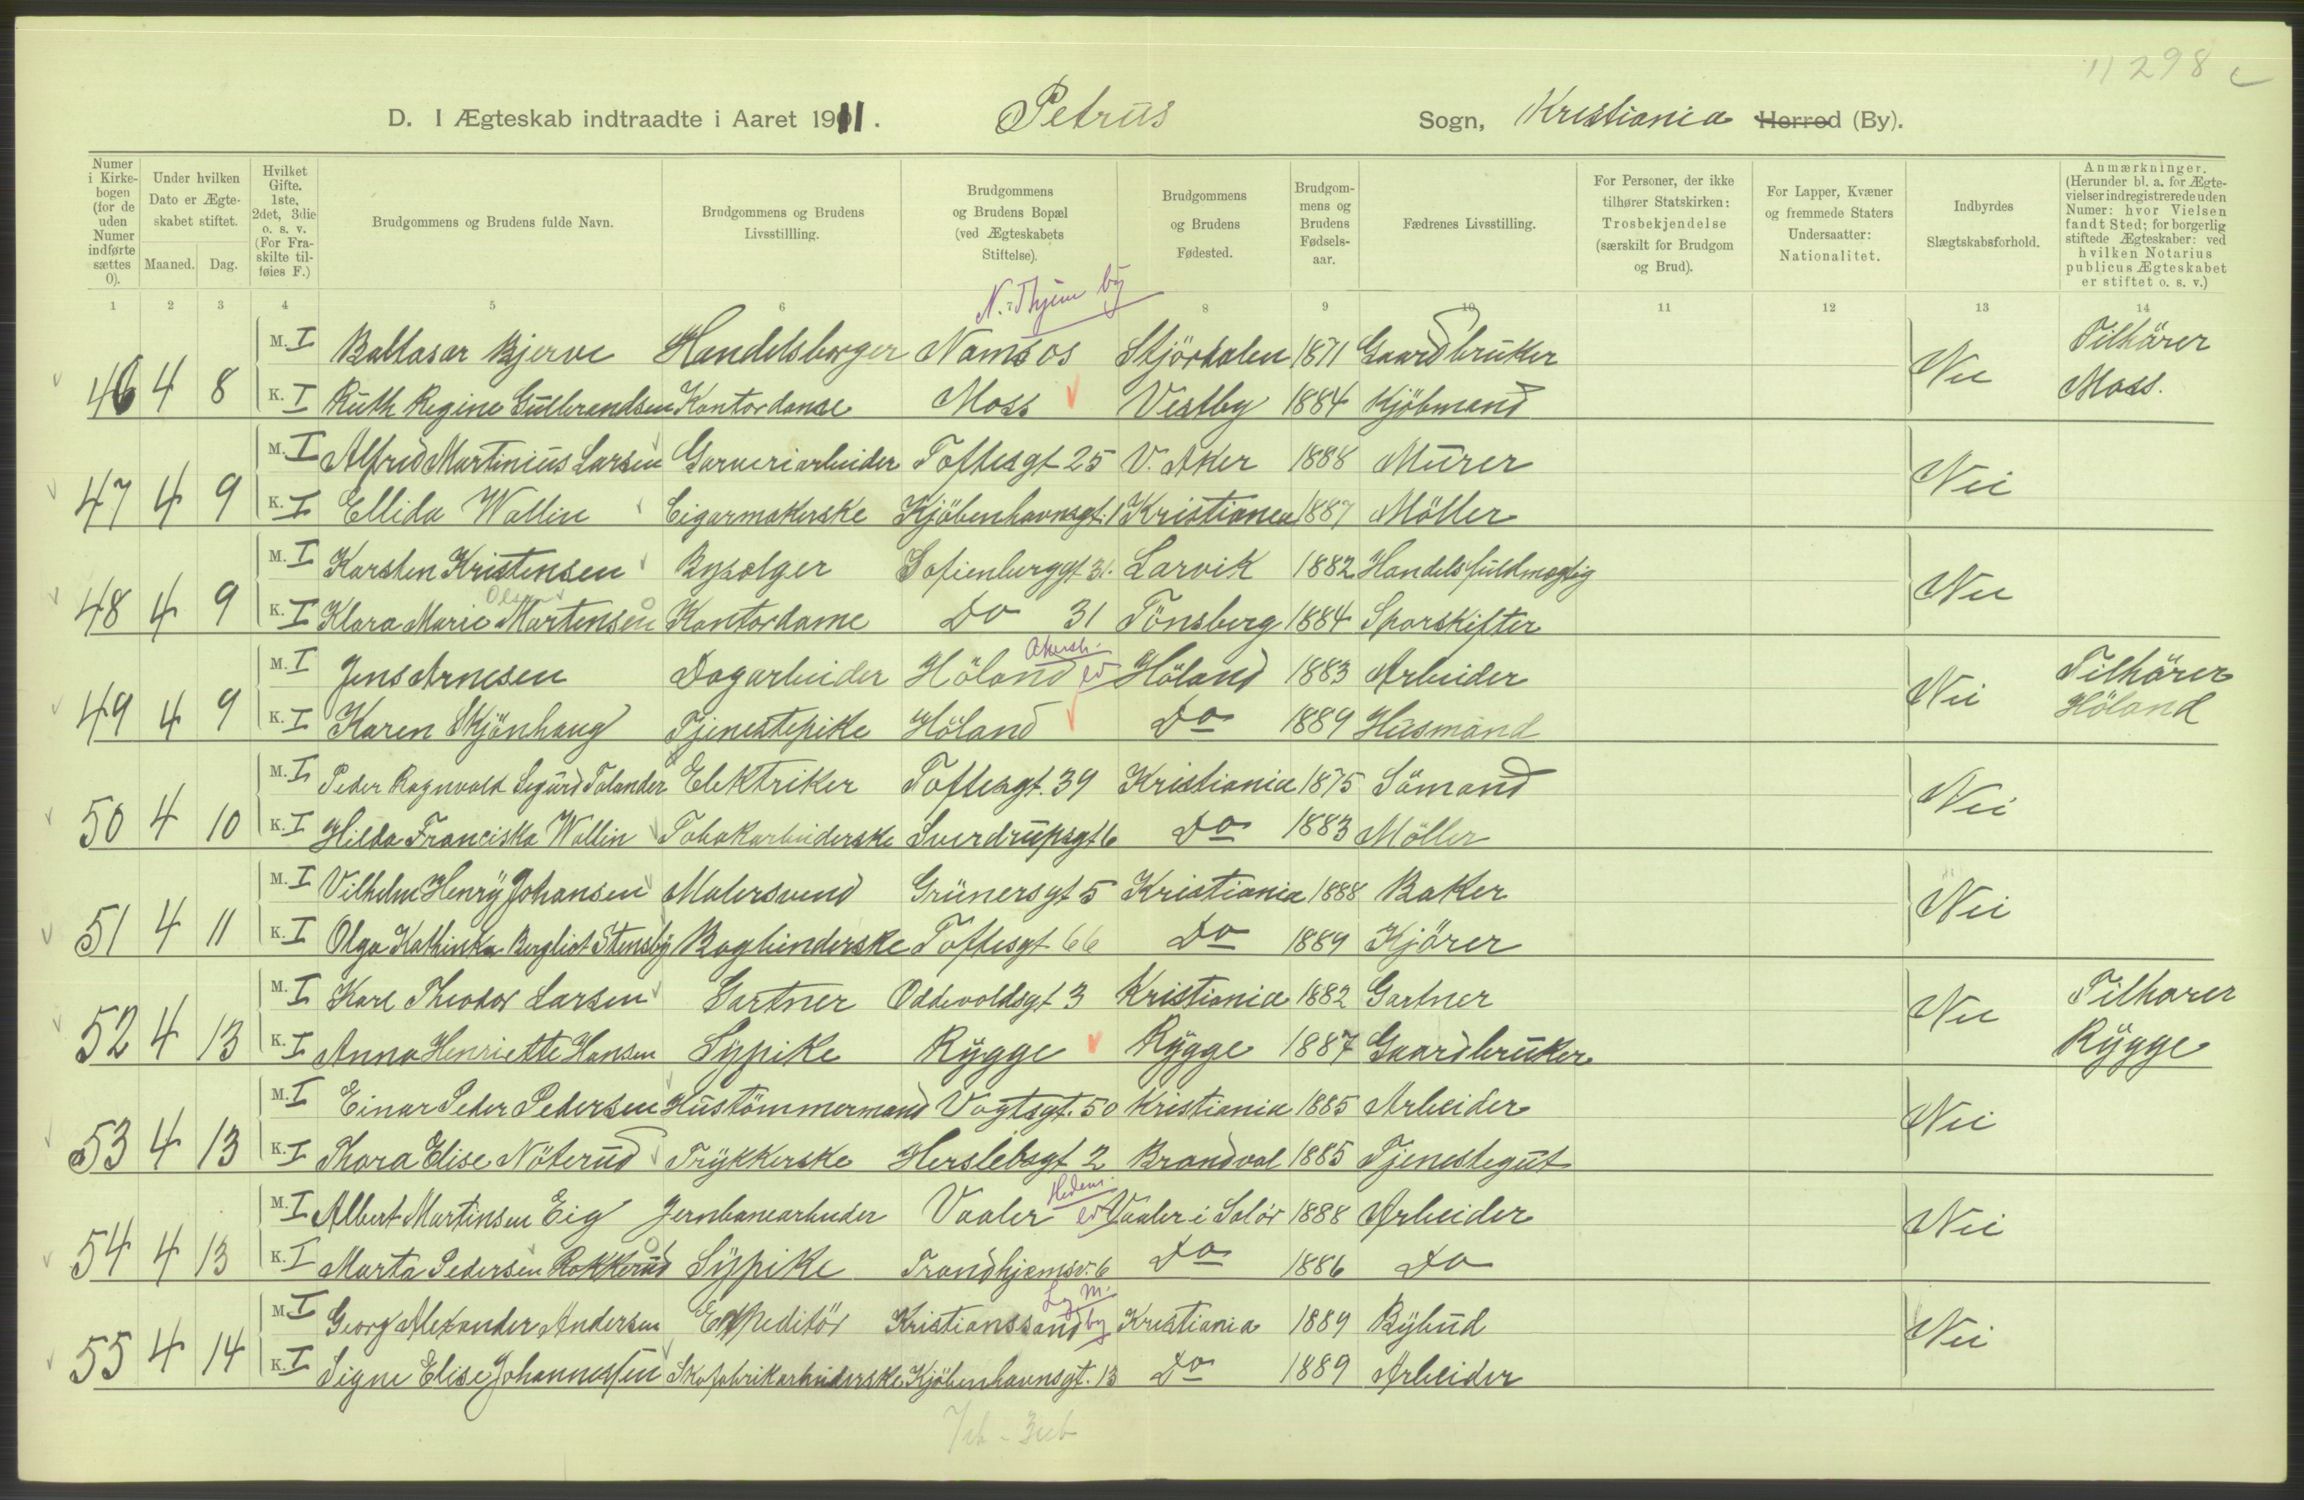 11298 c
D. I Ægteskab indtraadte i Aaret 1911. Petrus Sogn, Kristiania Herred (By).
Numer i Kirkebogen (for de uden Numer indførte sættes 0). | Under hvilken Dato er Ægteskabet stiftet. Maaned. Dag. | Hvilket Gifte. 1ste, 2det, 3die o. s. v. (For Fraskilte tilføies F.) | Brudgommens og Brudens fulde Navn. | Brudgommens og Brudens Livsstillling. | Brudgommens og Brudens Bopæl (ved Ægteskabets Stiftelse). | Brudgommens og Brudens Fødested. | Brudgommens og Brudens Fødselsaar. | Fædrenes Livsstilling. | For Personer, der ikke tilhører Statskirken: Trosbekjendelse (særskilt for Brudgom og Brud). | For Lapper, Kvæner og fremmede Staters Undersaatter: Nationalitet. | Indbyrdes Slægtskabsforhold. | Anmærkninger. (Herunder bl. a. for Ægtevielser indregistrerede uden Numer: hvor Vielsen fandt Sted; for borgerlig stiftede Ægteskaber: ved hvilken Notarius publicus Ægteskabet er stiftet o. s. v.)
1 2 3 4 5 6 7 8 9 10 11 12 13 14
N. Thjem by
M. I Baltasar Bjerve Handelsborger Namsos Stjørdalen 1871 Gaardbruker Tilhører
46 4 8 K. I Ruth Regine Gulbrandsen Kontordame Moss Vestby 1884 Kjøbmand Nei Moss.
M. I Alfred Martinius Larsen Garveriarbeider Toftesgt 25 V. Aker 1888 Murer
47 4 9 K. I Ellida Wallin Cigarmakerske Kjøbenhavnsgt. 1 Kristiania 1887 Møller Nei
M. I Karsten Kristensen Bysælger Sofienberggt 31. Larvik 1882 Handelsfuldmægtig
Olsen
48 4 9 K. I Klara Marie Martensen Kontordame Do 31 Tønsberg 1884 Sporskifter Nei
Akersh.
M. I Jens Arnesen Dagarbeider Høland Høland 1883 Arbeider Tilhører
49 4 9 K. I Karen Skjønhaug Tjenestepike Høland Do 1889 Husmand Nei Høland
M. I Peder Ragnvald Sigurd Tolander Elektriker Toftesgt. 39 Kristiania 1875 Sømand
50 4 10 K. I Hilda Franciska Wallin Tobakarbeiderske Sverdrupsgt 6 Do 1883 Møller Nei
M. I Vilhelm Henry Johansen Malersvend Grünersgt 5 Kristiania 1888 Baker
51 4 11 K. I Olga Kathinka Bergliot Stensby Bogbinderske Toftesgt 66 Do 1889 Kjører Nei
M. I Karl Theodor Larsen Gartner Oddevoldsgt 3 Kristiania 1882 Gartner Tilhører
52 4 13 K. I Anna Henriette Hansen Sypike Rygge Rygge 1887 Gaardbruker Nei Rygge
M. I Einar Peder Pedersen Hustømmermand Vogtsgt. 50 Kristiania 1885 Arbeider
53 4 13 K. I Thora Elise Nøterud Trykkerske Herslebsgt 2 Brandval 1885 Tjenestegut Nei
Hedem.
M. I Albert Martinsen Eig Jernbanearbeider Vaaler Vaaler i Solør 1888 Arbeider
54 4 13 K. I Marta Pedersen Rokkerud Sypike Trondhjemsv. 6 Do 1886 Do Nei
L. M.
M. I Georg Alexander Andersen Expeditør Kristianssand by Kristiania 1889 Bybud
55 4 14 K. I Signe Elise Johannessen Skofabrikarbeiderske Kjøbenhavnsgt. 13 Do 1889 Arbeider Nei